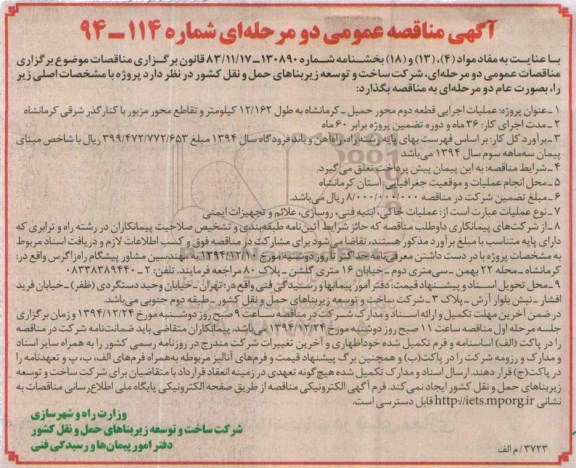 آگهی مناقصه عمومی دو مرحله‌ای شماره ۱۱۴ـ۹۴
با عنایت به مفاد مواد (۴)، (۱۳) و (۱۸) بخشنامه شماره ۱۳۰۸۹۰ـ۸۳/۱۱/۱۷ قانون برگزاری مناقصات موضوع برگزاری
مناقصات عمومی دو مرحله‌ای، شرکت ساخت و توسعه زیربناهای حمل و نقل کشور در نظر دارد پروژه با مشخصات اصلی زیر
را، بصورت عام دو مرحله‌ای به مناقصه بگذارد:
۱ـ عنوان پروژه: عملیات اجرایی قطعه دوم محور حمیل ـ کرمانشاه به طول ۱۲/۱۶۲ کیلومتر و تقاطع محور مزبور با کنارگذر شرقی کرمانشاه
۲ـ مدت اجرای کار: ۳۶ ماه و دوره تضمین پروژه برابر ۶۰ ماه
۳ـ برآورد کل کار: بر اساس فهرست بهای پایه رشته راه، راه‌آهن و باند فرودگاه سال ۱۳۹۴ مبلغ ۳۹۹/۴۷۲/۷۷۲/۶۵۳ ریال با شاخص مبنای
پیمان سه‌ماهه سوم سال ۱۳۹۴ می‌باشد
۴ـ شرایط مناقصه: به این پیمان پیش پرداخت تعلق می‌گیرد.
۵ـ محل انجام عملیات و موقعیت جغرافیایی: استان کرمانشاه
۶ـ مبلغ تضمین شرکت در مناقصه ۸/۰۰۰/۰۰۰/۰۰۰ ریال می‌باشد.
۷ـ نوع عملیات عبارت است از: عملیات خاکی، ابنیه فنی، روسازی، علائم و تجهیزات ایمنی
۸ـ از شرکت‌های پیمانکاری داوطلب مناقصه که حائز شرایط آئین‌نامه طبقه‌بندی و تشخیص صلاحیت پیمانکاران در رشته راه و ترابری که
دارای پایه متناسب با مبلغ برآورد مذکور هستند، تقاضا می‌شود برای مشارکت در مناقصه فوق و کسب اطلاعات لازم و دریافت اسناد مربوط
به مشخصات پروژه با در دست داشتن معرفی‌نامه حداکثر تا روز دوشنبه مورخ ۱۳۹۴/۱۲/۱۰ به مهندسین مشاور پیشگام راه‌زاگرس واقع در:
کرمانشاه ـ محله ۲۲ بهمن ـ سی‌متری دوم ـ خیابان ۱۶ متری گلشن ـ پلاک ۸۰ مراجعه فرمایند. تلفن: ۲ ـ ۰۸۳۳۸۳۸۹۴۴۰
۹ـ محل تحویل اسناد و پیشنهاد قیمت: دفتر امور پیمانها و رسیدگی فنی واقع در: تهران ـ خیابان وحید دستگردی (ظفر) ـ خیابان فرید
افشار ـ نبش بلوار آرش ـ پلاک ۳ ـ شرکت ساخت و توسعه زیربناهای حمل و نقل کشور ـ طبقه دوم جنوبی می‌باشد.
در ضمن آخرین مهلت تکمیل و ارائه اسناد و مدارک شرکت در مناقصه ساعت ۹ صبح روز دوشنبه مورخ ۱۳۹۴/۱۲/۲۴ و زمان برگزاری
جلسه مرحله اول مناقصه ساعت ۱۱ صبح روز دوشنبه مورخ ۱۳۹۴/۱۲/۲۴ می‌باشد. پیمانکاران متقاضی باید ضمانت‌نامه شرکت در مناقصه
را در پاکت (الف) اساسنامه و فرم تکمیل شده خوداظهاری و آخرین تغییرات شرکت مندرج در روزنامه رسمی کشور را به همراه سایر اسناد
و مدارک و رزومه شرکت را در پاکت(ب) و همچنین برگ پیشنهاد قیمت و فرم‌های آنالیز مربوطه به‌همراه فرم‌های الف، ب، پ و تعهدنامه را
در پاکت(ج) قرار دهند. ارسال اسناد و مدارک تکمیل شده هیچ‌گونه تعهدی در زمینه انعقاد قرارداد با متقاضیان برای شرکت ساخت و توسعه
زیربناهای حمل و نقل کشور ایجاد نمی‌کند. فرم آگهی الکترونیکی مناقصه از طریق صفحه الکترونیکی پایگاه ملی اطلاع‌رسانی مناقصات به
نشانی http://iets.mporg.ir قابل دسترسی است.
وزارت راه و شهرسازی
شرکت ساخت و توسعه زیربناهای حمل و نقل کشور
دفتر امور پیمان‌ها و رسیدگی فنی
۳۷۲۳/م الف